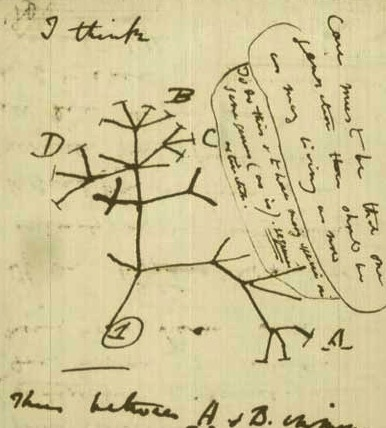 I think
Case must be that one
generation then should be
as many living as now
To do this & to have many species in
same genus (as is). requires
extinction.
B
D
C
1
A
Thus between A & B.